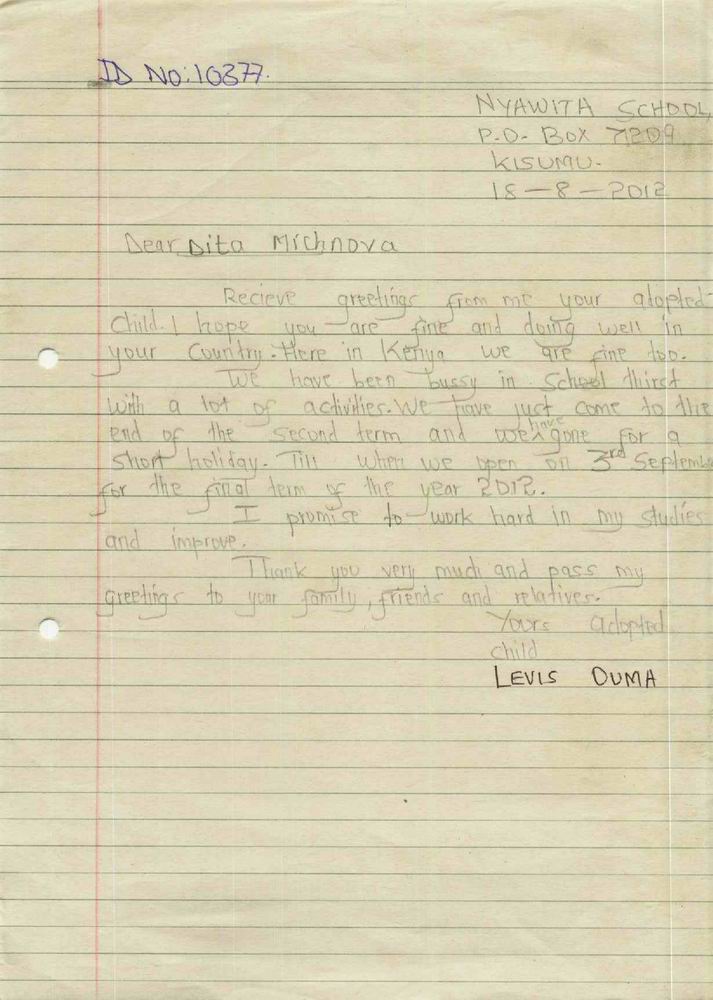 ID No: 10377.
NYAWITA SCHOOL,
P.O. BOX 71209
KISUMU.
18-8-2012
Dear Dita Michnova
Recieve greetings from me your adopted
Child. I hope you are fine and doing well in
your Country. Here in Kenya we are fine too.
We have been bussy in School thirst
With a lot of activities. We have just come to the
end of the second term and we have gone for a
short holiday. Till when we open on 3rd Septembe
for the final term of the year 2012.
I promise to work hard in my studies
and improve.
Thank you very much and pass my
greetings to your family, friends and relatives.
Yours adopted
child
LEVIS OUMA